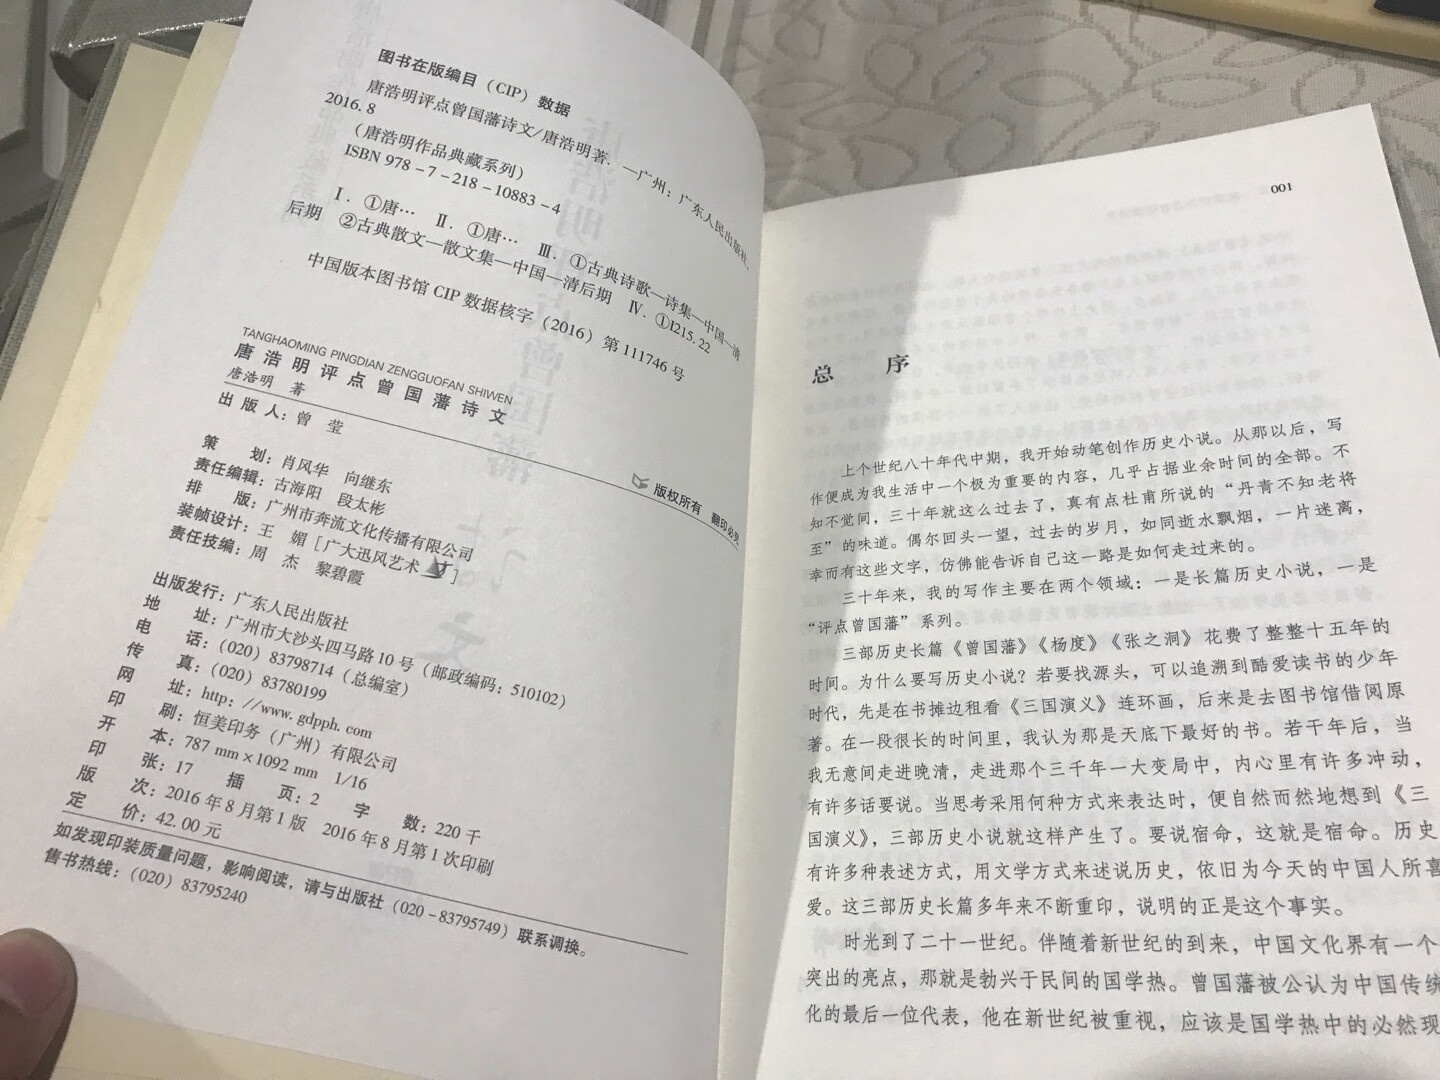 图书在版编目（CIP）数据
唐浩明评点曾国藩诗文/唐浩明著. —广州：广东人民出版社，
2016.8
（唐浩明作品典藏系列）
ISBN 978-7-218-10883-4
Ⅰ. ①唐… Ⅱ. ①唐… Ⅲ. ①古典诗歌—诗集—中国—清
后期 ②古典散文—散文集—中国—清后期 Ⅳ. ①I215.22
中国版本图书馆 CIP 数据核字（2016）第 111746 号
TANGHAOMING PINGDIAN ZENGGUOFAN SHIWEN
唐浩明评点曾国藩诗文
唐浩明 著
版权所有 翻印必究
出版人：曾 莹
策 划：肖风华 向继东
责任编辑：古海阳 段太彬
排 版：广州市奔流文化传播有限公司
装帧设计：王 媚［广大迅风艺术］
责任技编：周 杰 黎碧霞
出版发行：广东人民出版社
地 址：广州市大沙头四马路 10 号（邮政编码：510102）
电 话：（020）83798714（总编室）
传 真：（020）83780199
网 址：http：//www.gdpph.com
印 刷：恒美印务（广州）有限公司
开 本：787 mm×1092 mm 1/16
印 张：17 插 页：2 字 数：220 千
版 次：2016 年 8 月第 1 版 2016 年 8 月第 1 次印刷
定 价：42.00 元
如发现印装质量问题，影响阅读，请与出版社（020-83795749）联系调换。
售书热线：（020）83795240
001
总 序
上个世纪八十年代中期，我开始动笔创作历史小说。从那以后，写
作便成为我生活中一个极为重要的内容，几乎占据业余时间的全部。不
知不觉间，三十年就这么过去了，真有点杜甫所说的“丹青不知老将
至”的味道。偶尔回头一望，过去的岁月，如同逝水飘烟，一片迷离，
幸而有这些文字，仿佛能告诉自己这一路是如何走过来的。
三十年来，我的写作主要在两个领域：一是长篇历史小说，一是
“评点曾国藩”系列。
三部历史长篇《曾国藩》《杨度》《张之洞》花费了整整十五年的
时间。为什么要写历史小说？若要找源头，可以追溯到酷爱读书的少年
时代，先是在书摊边租看《三国演义》连环画，后来是去图书馆借阅原
著。在一段很长的时间里，我认为那是天底下最好的书。若干年后，当
我无意间走进晚清，走进那个三千年一大变局中，内心里有许多冲动，
有许多话要说。当思考采用何种方式来表达时，便自然而然地想到《三
国演义》，三部历史小说就这样产生了。要说宿命，这就是宿命。历史
有许多种表述方式，用文学方式来述说历史，依旧为今天的中国人所喜
爱。这三部历史长篇多年来不断重印，说明的正是这个事实。
时光到了二十一世纪。伴随着新世纪的到来，中国文化界有一个
突出的亮点，那就是勃兴于民间的国学热。曾国藩被公认为中国传统
化的最后一位代表，他在新世纪被重视，应该是国学热中的必然现